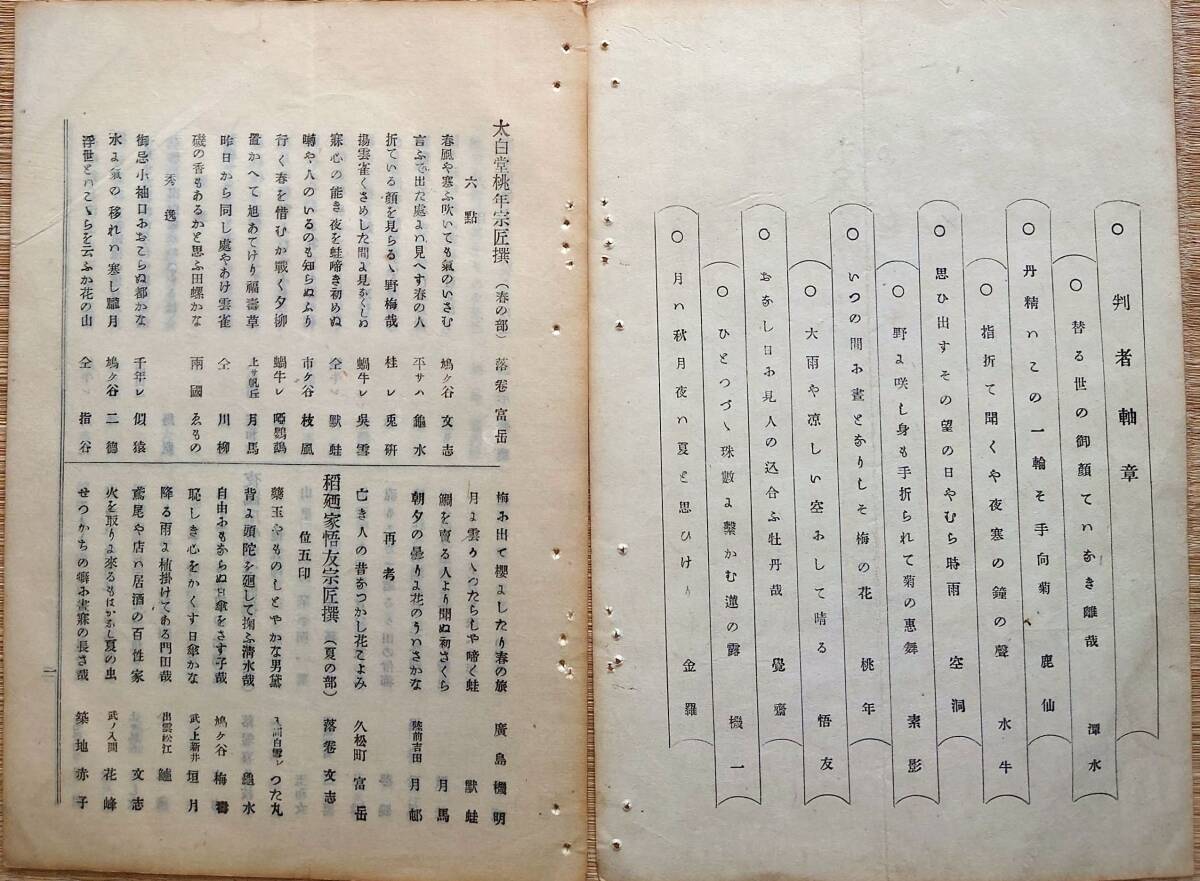 判者軸章
○ 替る世の御顔てハあき雛哉 潭水
○ 丹精ハこの一輪そ手向菊 鹿仙
○ 指折て聞くや夜寒の鐘の聲 水牛
○ 思ひ出すその望の日やむら時雨 空洞
○ 野よ咲し身も手折られて菊の惠舞 素影
○ いつの間お晝とありしそ梅の花 桃年
○ 大雨や凉しい空おして晴る 悟友
○ おあし日お見人の込合ふ牡丹哉 覺齋
○ ひとつづゝ珠數よ繫かむ蓮の露 機一
○ 月ハ秋月夜ハ夏と思ひけり 金羅
太白堂桃年宗匠撰 (春の部) 落卷 富岳
六點
春風や寒ふ吹いても氣のいさむ 鳩ケ谷 文志
言ふて出た處よハ見へす春の人 平サハ 龜水
折ている顔を見らるゝ野梅哉 桂レ 兎研
揚雲雀くさめした間よ見あくしぬ 蝸牛レ 吳雪
寐心の能き夜を蛙啼き初めぬ 仝牛レ 默蛙
囀や人のいるのも知らぬふり 市ケ谷 枝風
行く春を惜むか戰く夕柳 蝸牛レ 啞鸚鵡
置かへて旭あてけり福壽草 上サ帆丘 月馬
昨日から同し處やあけ雲雀 仝 川柳
磯の香もあるかと思ふ田螺かな 兩國 ゑもの
秀逸
御忌小袖口おおこらぬ都かな 千年レ 似猿
水よ氣の移れハ寒し朧月 鳩ケ谷 二德
浮世とハこゝらを云ふか花の山 仝牛レ 指谷
梅お出て櫻よしたり春の旅 廣島 機明
月よ雲かゝつたらしや啼く蛙 默蛙
鯛を賣る人より聞ぬ初さくら 月馬
朝夕の曇りよ花のうハさかな 陸前吉田 月邨
再考
亡き人の昔あつかし花こよみ 久松町 富岳
稻廼家悟友宗匠撰 (夏の部) 落卷 文志
位五印
藥玉やものしとやかな男黛 入間白雪レ つた丸
背よ頭陀を廻して掬ふ清水哉 龜水
自由おもあらぬ日傘をさす子哉 鳩ケ谷 梅壽
恥しき心をかくす日傘かな 武ノ上新井 垣月
降る雨よ植掛けてある門田哉 出雲松江 鱸
鳶尾や店ハ居酒の百性家 文志
火を取りよ來るもはかあし夏の虫 武ノ入間 花峰
せつかちの癖お晝寐の長さ哉 築地 赤子
二